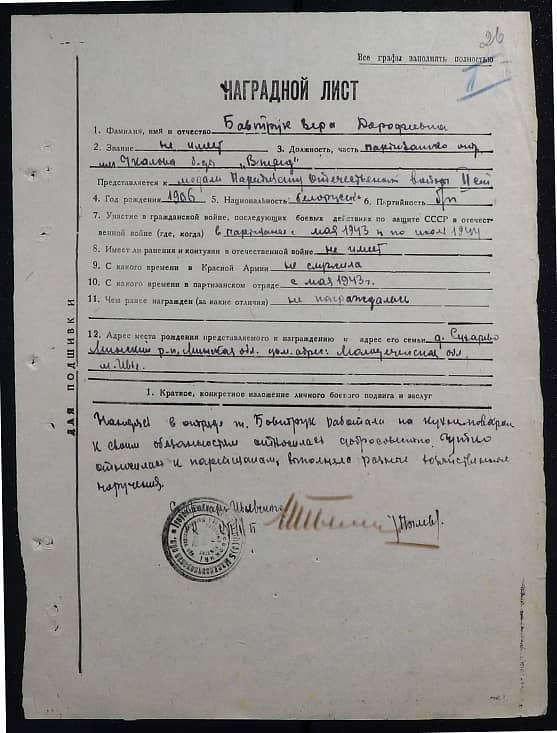 26
Все графы заполнять полностью
II
НАГРАДНОЙ ЛИСТ
1. Фамилия, имя и отчество Бавтрук Вера Дорофеевна
2. Звание не имеет 3. Должность, часть партизанка отр.
им Чкалова б-да „Вперед"
Представляется к медали Партизану Отечественной войны II ст
4. Год рождения 1906 5. Национальность белоруска 6. Партийность б/п
7. Участие в гражданской войне, последующих боевых действиях по защите СССР в отечест-
венной войне (где, когда) в партизанах с мая 1943 г. по июль 1944
8. Имеет ли ранения и контузии в отечественной войне не имеет
9. С какого времени в Красной Армии не служила
10. С какого времени в партизанском отряде с мая 1943 г.
11. Чем ранее награжден (за какие отличия) не награждалась
12. Адрес места рождения представляемого к награждению и адрес его семьи д. Сухарево
Минский р-н, Минская обл. дом. адрес: Молодеченская обл,
м. Ивье.
1. Краткое, конкретное изложение личного боевого подвига и заслуг
Находясь в отряде т. Бавтрук работала на кухне поваром
К своим обязанностям относилась добросовестно. Чутко
относилась к партизанам, выполняла разные хозяйственные
поручения.
ДЛЯ ПОДШИВКИ